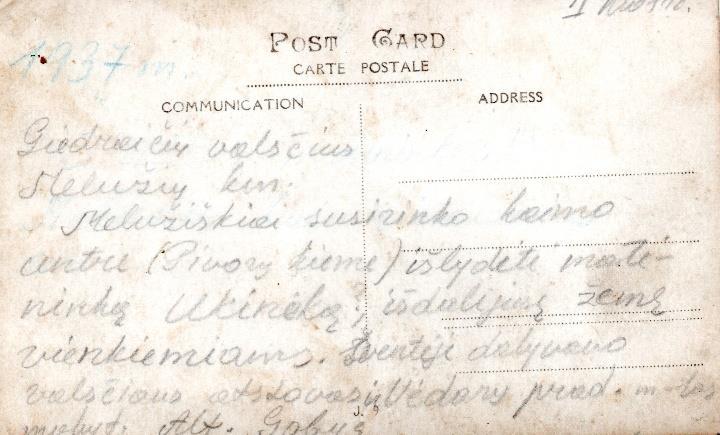 POST CARD
1937 m.
CARTE POSTALE
COMMUNICATION
ADDRESS
Giedraičių valsčius
Melužių km.
Melužiškiai susirinko kaimo
centre (Pivorų kieme) išlydėti mati-
ninką Ukinėką, išdalijusį žemę
vienkiemiams. Šventėje dalyvavo
valsčiaus atstovas, Vėdarų prad. m-los
mokyt. Alf.
J.